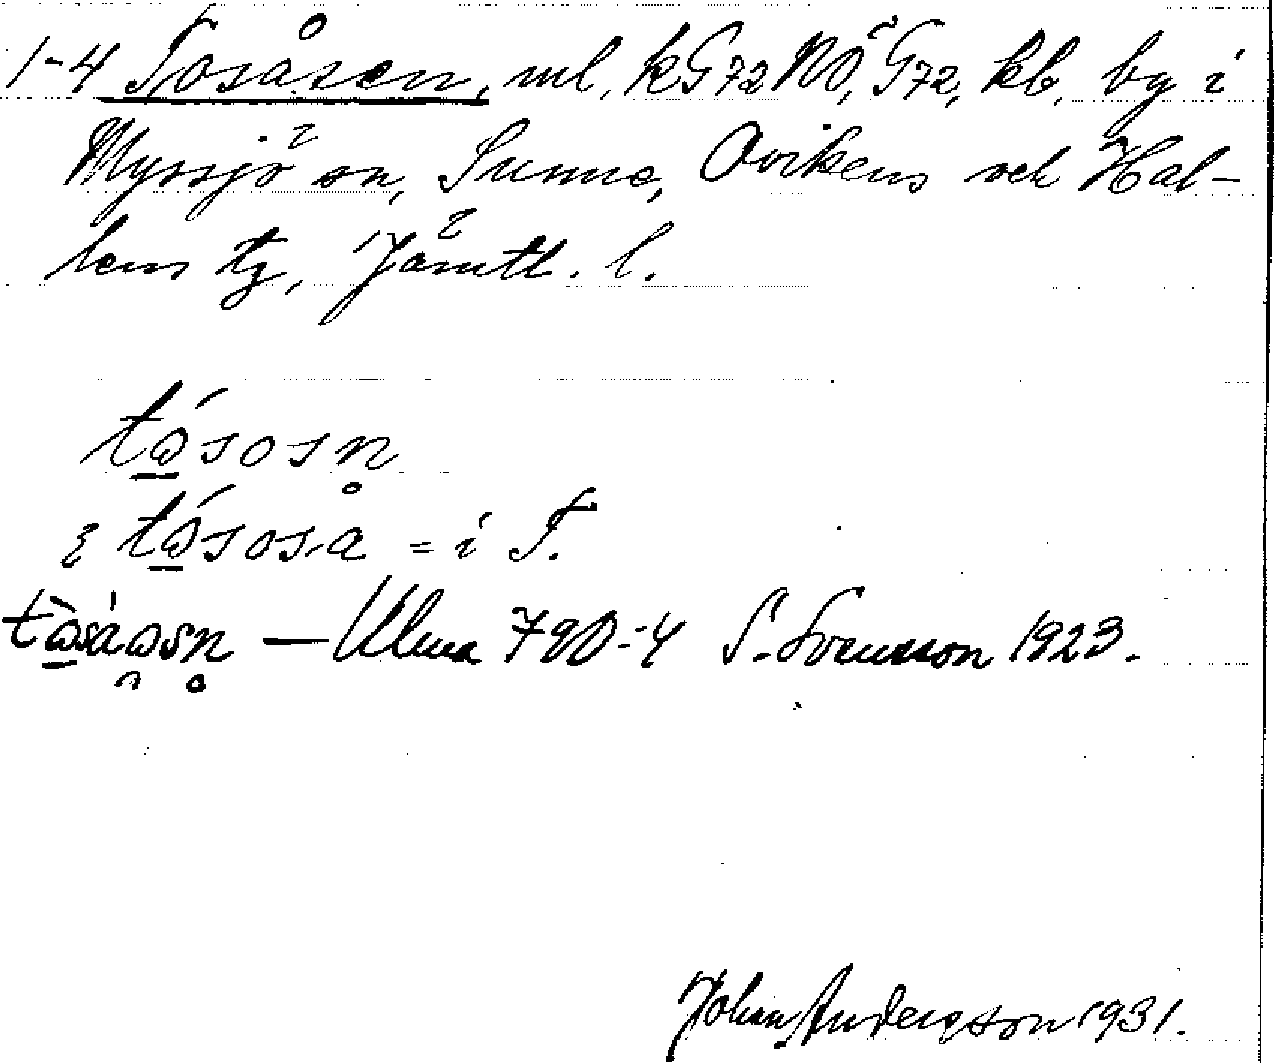 1-4 Tosåsen, ml, kG72NÖ, G72, kb, by i
Myssjö sn, Sunne, Ovikens och Hal-
lens tg, Jämtl. l.
= i T.
— Ulma 790-4 S. Svensson 1923.
Johan Andersson 1931.